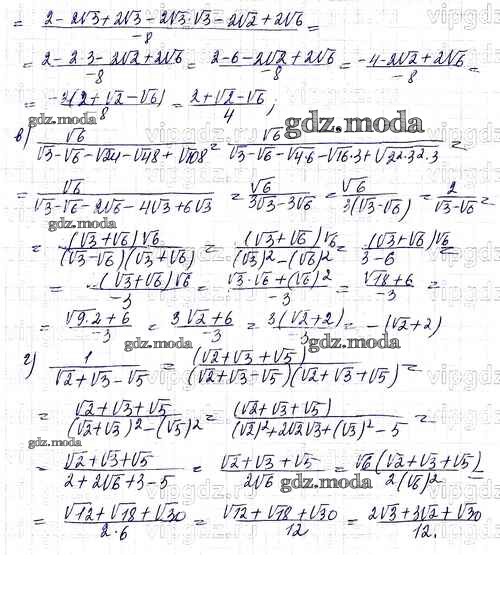 = (2 - 2√3 + 2√3 - 2√3·√3 - 2√2 + 2√6)/-8 =
= (2 - 2·3 - 2√2 + 2√6)/-8 = (2 - 6 - 2√2 + 2√6)/-8 = (-4 - 2√2 + 2√6)/-8 =
= (2 + √2 - √6)/4;
gdz.moda
gdz.moda
в) √6/(√3 - √6 - √24 - √48 + √108) =
= √6/(√3 - √6 - 2√6 - 4√3 + 6√3) = √6/(3√3 - 3√6) = √6/3(√3 - √6) = 2/(√3 - √6) =
gdz.moda
= (√3 + √6)√6/(√3 - √6)(√3 + √6) = (√3 + √6)√6/((√3)² - (√6)²) = (√3 + √6)√6/(3 - 6) =
= (√3 + √6)√6/-3 = (√3·√6 + (√6)²)/-3 = (√18 + 6)/-3 =
= (√9·2 + 6)/-3 = (3√2 + 6)/-3 = 3(√2 + 2)/-3 = -(√2 + 2)
gdz.moda gdz.moda
г) 1/(√2 + √3 - √5) = (√2 + √3 + √5)/(√2 + √3 - √5)(√2 + √3 + √5) =
= (√2 + √3 + √5)/((√2 + √3)² - (√5)²) = (√2 + √3 + √5)/((√2)² + 2√2√3 + (√3)² - 5) =
gdz.moda
= (√2 + √3 + √5)/(2 + 2√6 + 3 - 5) = (√2 + √3 + √5)/2√6 = √6(√2 + √3 + √5)/2(√6)² =
gdz.moda
= (√12 + √18 + √30)/2·6 = (√12 + √18 + √30)/12 = (2√3 + 3√2 + √30)/12.